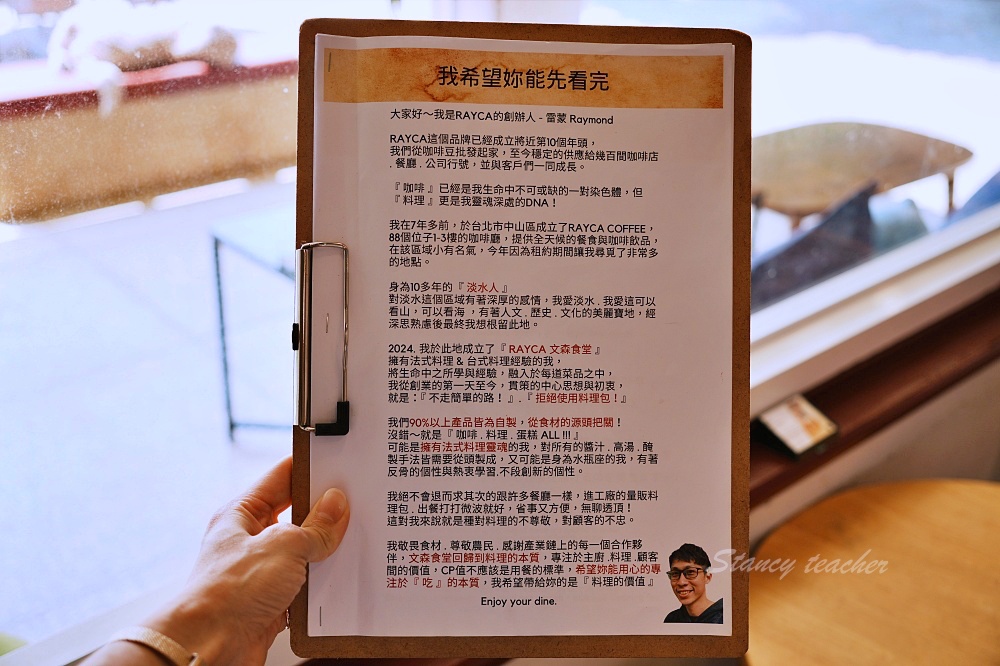 我希望妳能先看完
大家好～我是RAYCA的創辦人 - 雷蒙 Raymond
RAYCA這個品牌已經成立將近第10個年頭，
我們從咖啡豆批發起家，至今穩定的供應給幾百間咖啡店
. 餐廳 . 公司行號，並與客戶們一同成長。
『 咖啡 』已經是我生命中不可或缺的一對染色體，但
『 料理 』更是我靈魂深處的DNA！
我在7年多前，於台北市中山區成立了RAYCA COFFEE，
88個位子1-3樓的咖啡廳，提供全天候的餐食與咖啡飲品，
在該區域小有名氣，今年因為租約期間讓我尋覓了非常多
的地點。
身為10多年的『 淡水人 』
對淡水這個區域有著深厚的感情，我愛淡水 . 我愛這可以
看山，可以看海 ，有著人文 . 歷史 . 文化的美麗寶地，經
深思熟慮後最終我想根留此地。
2024. 我於此地成立了『 RAYCA 文森食堂 』
擁有法式料理 & 台式料理經驗的我，
將生命中之所學與經驗，融入於每道菜品之中，
我從創業的第一天至今，貫策的中心思想與初衷，
就是：『 不走簡單的路！ 』.『 拒絕使用料理包！』
我們90%以上產品皆為自製，從食材的源頭把關！
沒錯～就是『 咖啡 . 料理 . 蛋糕 ALL !!! 』
可能是擁有法式料理靈魂的我，對所有的醬汁 . 高湯 . 醃
製手法皆需要從頭製成，又可能是身為水瓶座的我，有著
反骨的個性與熱衷學習.不段創新的個性。
我絕不會退而求其次的跟許多餐廳一樣，進工廠的量販料
理包 . 出餐打打微波就好，省事又方便，無聊透頂！
這對我來說就是種對料理的不尊敬，對顧客的不忠。
我敬畏食材 . 尊敬農民 . 感謝產業鏈上的每一個合作夥
伴，文森食堂回歸到料理的本質，專注於主廚 .料理 .顧客
間的價值，CP值不應該是用餐的標準，希望妳能用心的專
注於『 吃 』的本質，我希望帶給妳的是『 料理的價值 』
Enjoy your dine.
Stancy teacher